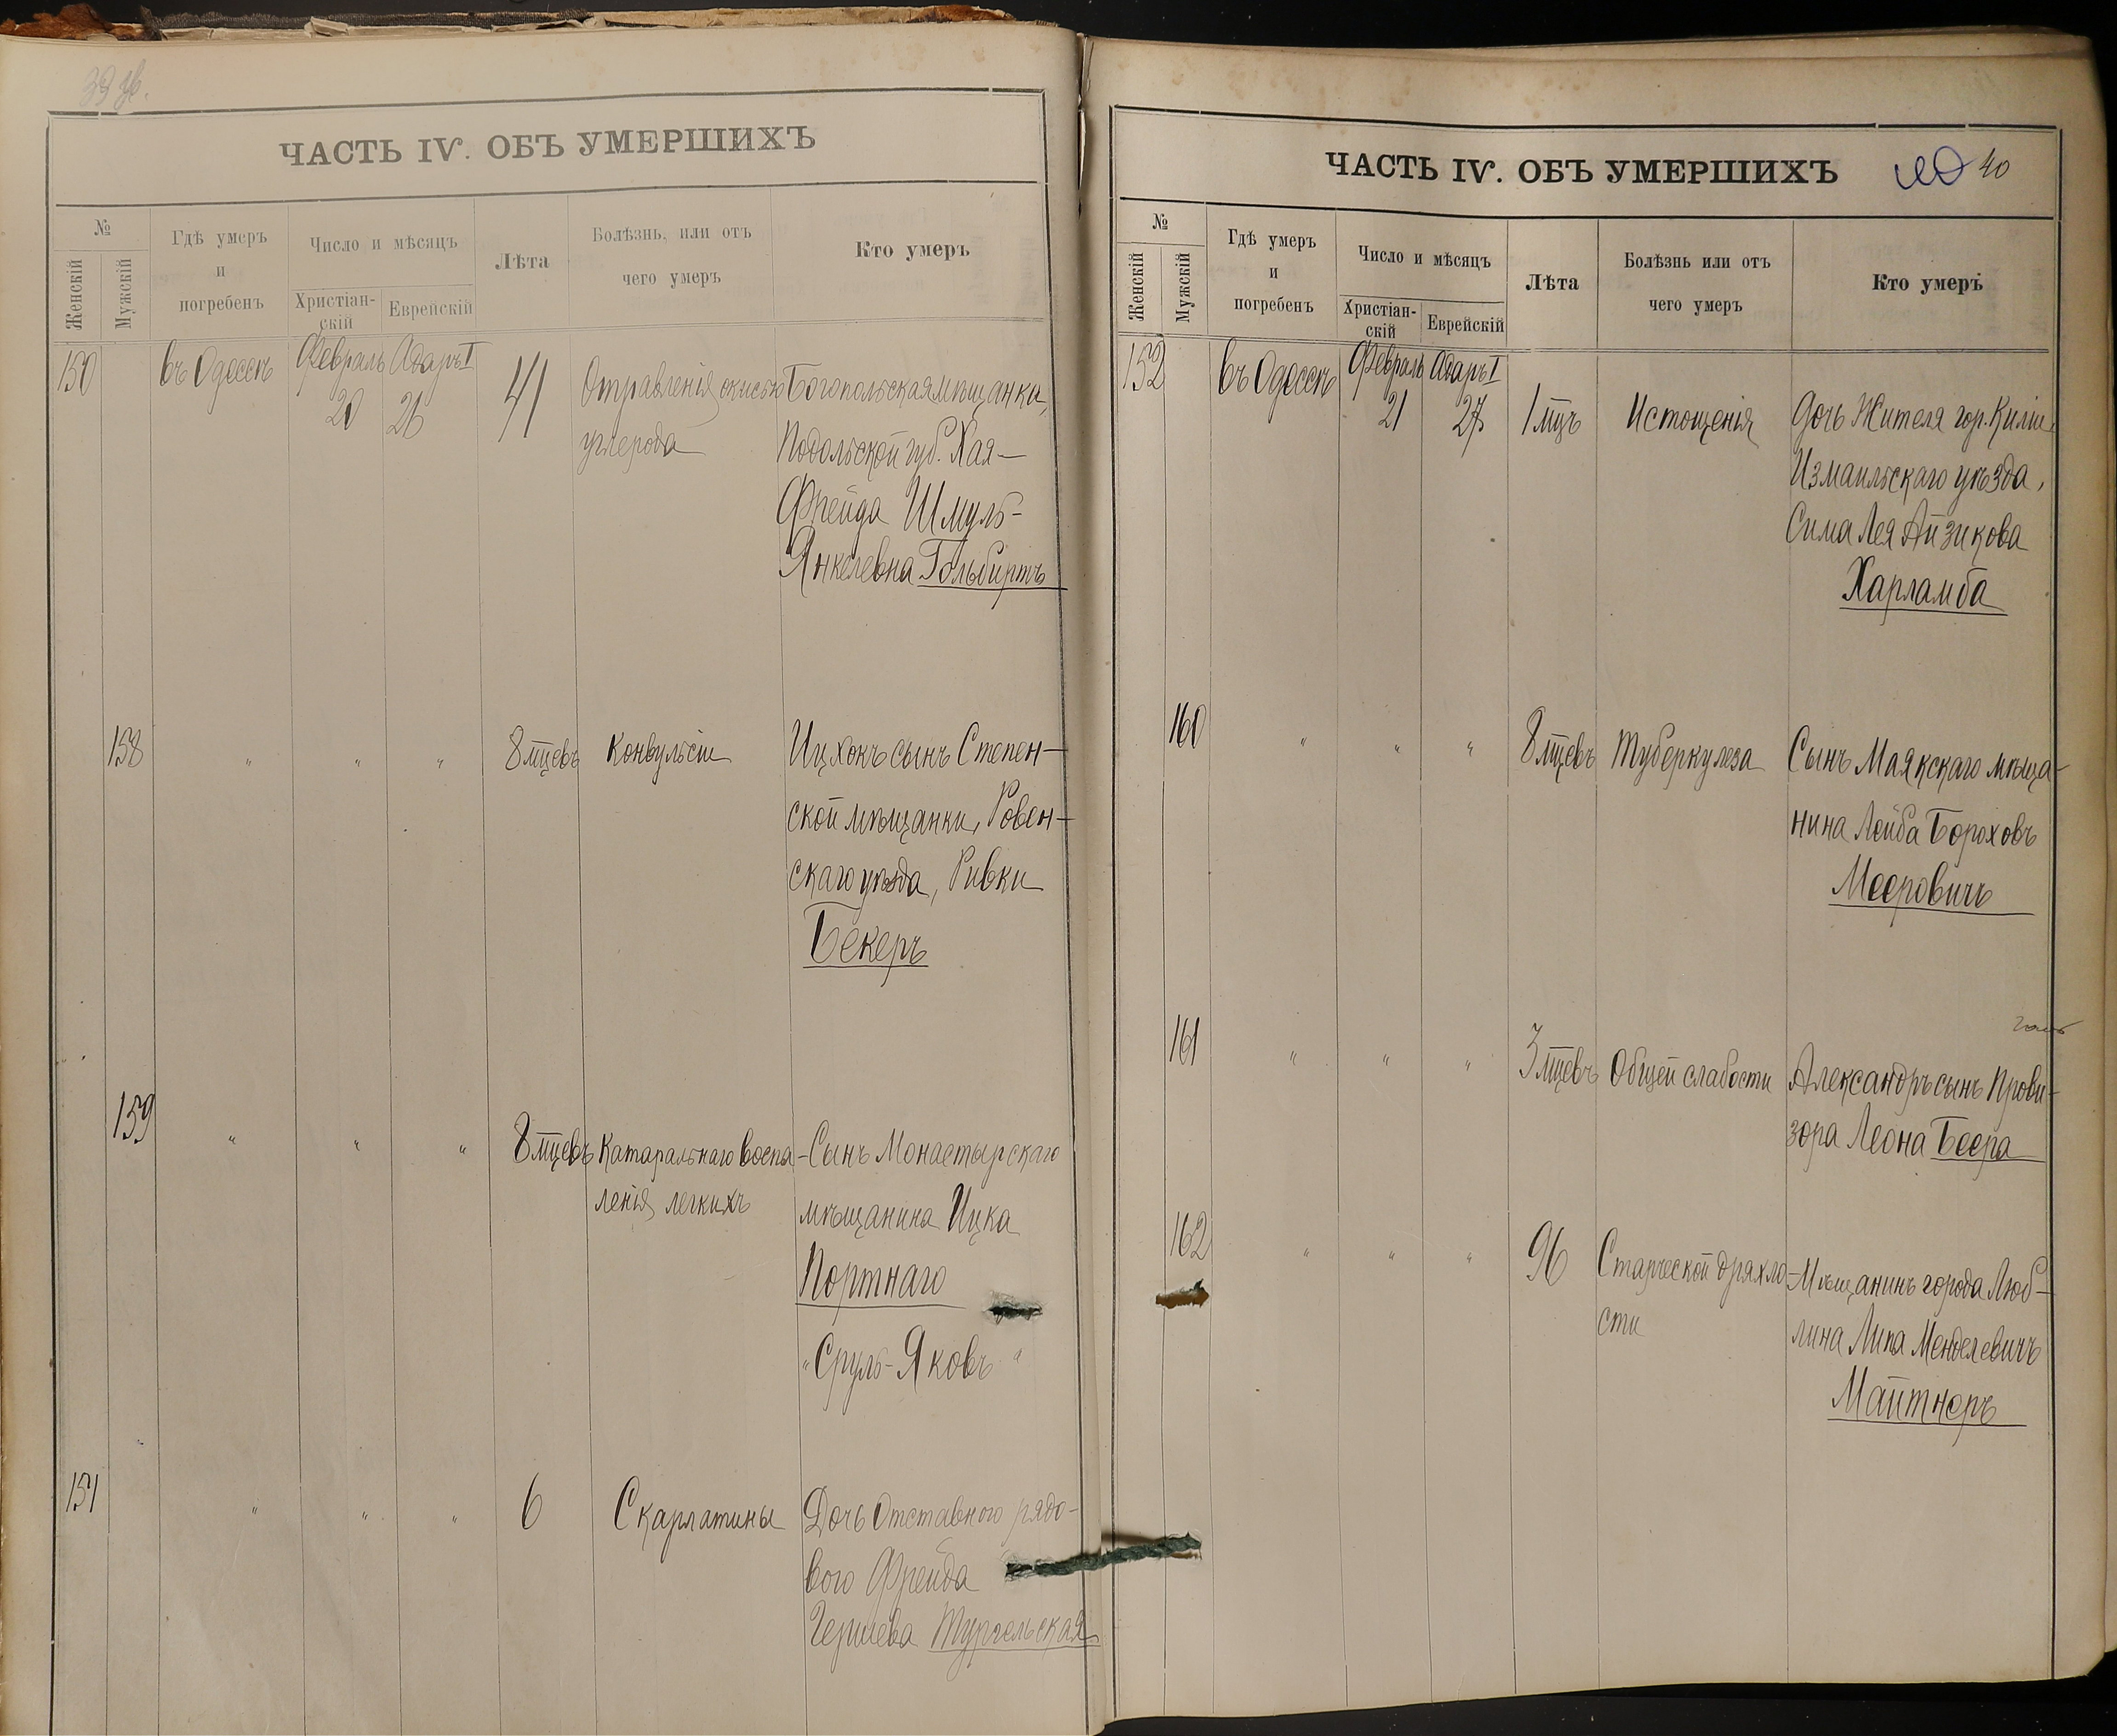 39 об.
ЧАСТЬ IV. ОБЪ УМЕРШИХЪ
№
Женскій
Мужскій
Гдѣ умеръ
и
погребенъ
Число и мѣсяцъ
Христіан-
скій
Еврейскій
Лѣта
Болѣзнь, или отъ
чего умеръ
Кто умеръ
150 въ Одессѣ Февраль Адаръ I 41 Отравленія окисью Богопольская мѣщанка,
20 26 углерода Подольской губ. Хая-
Фрейда Шмуль-
Янкелевна Гольбиртъ
158 " " " 8 мцевъ Конвульсіи Ицхокъ сынъ Степен-
ской мѣщанки, Ровен-
скаго уѣзда, Ривки
Бекеръ
159 " " " 8 мцевъ Катаральнаго воспа- Сынъ Монастырскаго
ленія легкихъ мѣщанина Ицка
Портнаго
"Сруль-Яковъ"
151 " " " 6 Скарлатины Дочь Отставного рядо-
вого Фрейда
Гершева Тургельская
ЧАСТЬ IV. ОБЪ УМЕРШИХЪ 40 40
№
Женскій
Мужскій
Гдѣ умеръ
и
погребенъ
Число и мѣсяцъ
Христіан-
скій
Еврейскій
Лѣта
Болѣзнь или отъ
чего умеръ
Кто умеръ
152 въ Одессѣ Февраль Адаръ I
21 27 1 мцъ Истощенія Дочь Жителя гор. Киліи,
Измаильскаго уѣзда,
Сима Лея Айзикова
Харламба
160 " " " 8 мцевъ Туберкулеза Сынъ Маякскаго мѣща-
нина Лейба Бороховъ
Мееровичъ
161 " " " 3 мцевъ Общей слабости Александръ сынъ Прови-
зора Леона Беера
162 " " " 96 Старческой дряхло- Мѣщанинъ города Люб-
сти лина Липа Менделевичъ
Майтнеръ